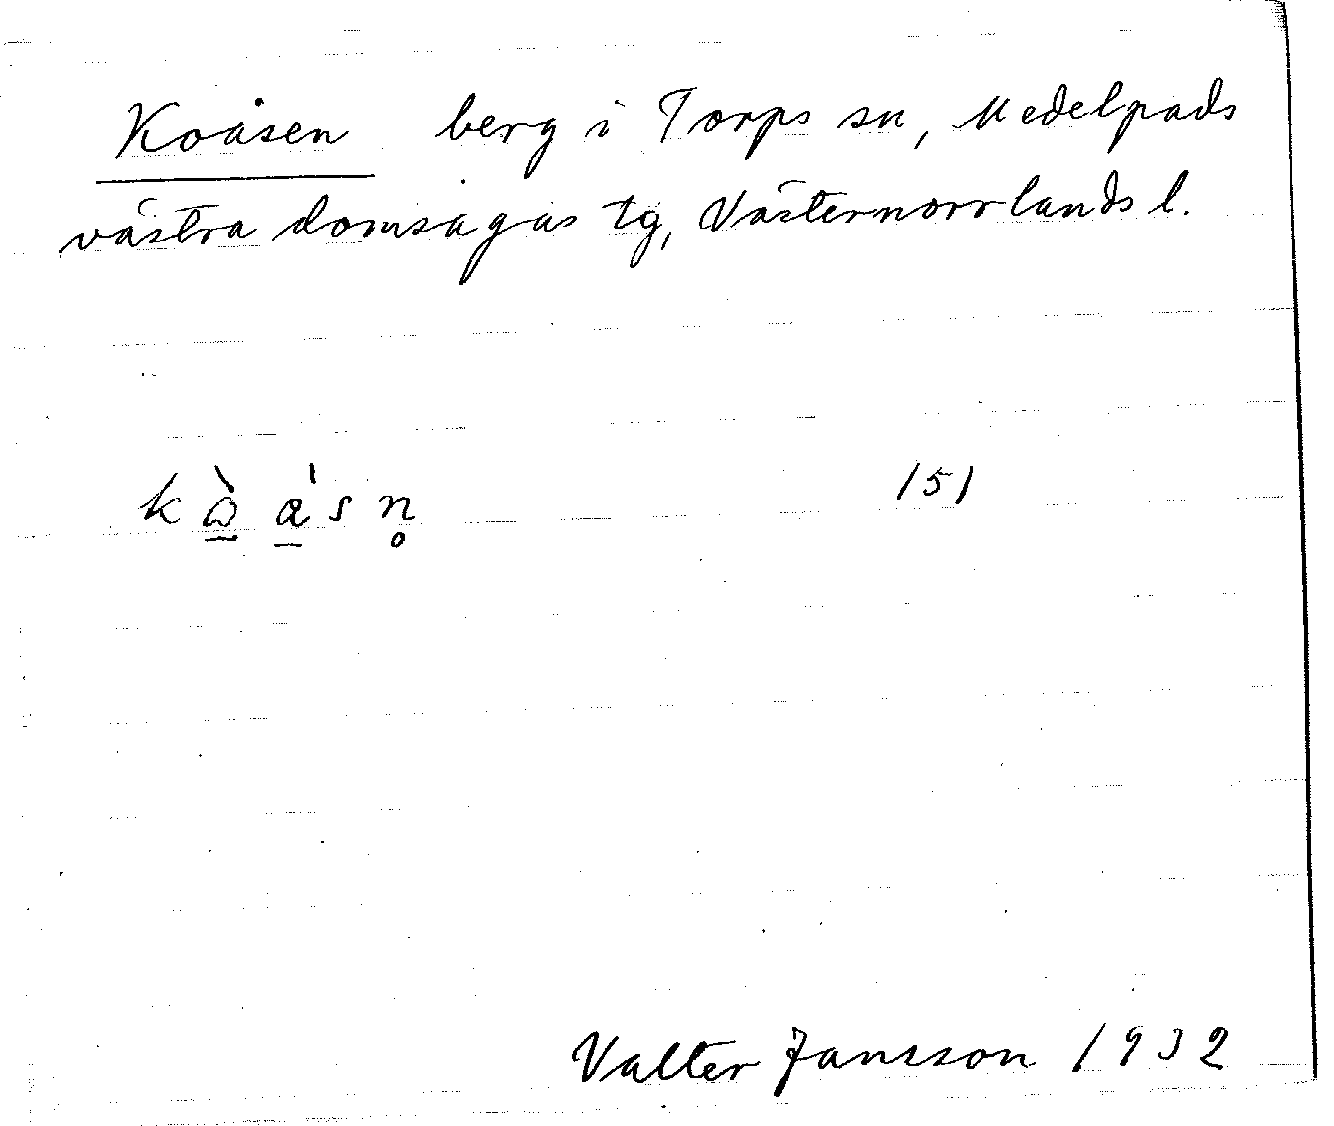 Koåsen berg i Torps sn, Medelpads
västra domsagas tg, Västernorrlands l.
kò̱a̱̍sn̥ 151
Valter Jansson 1932